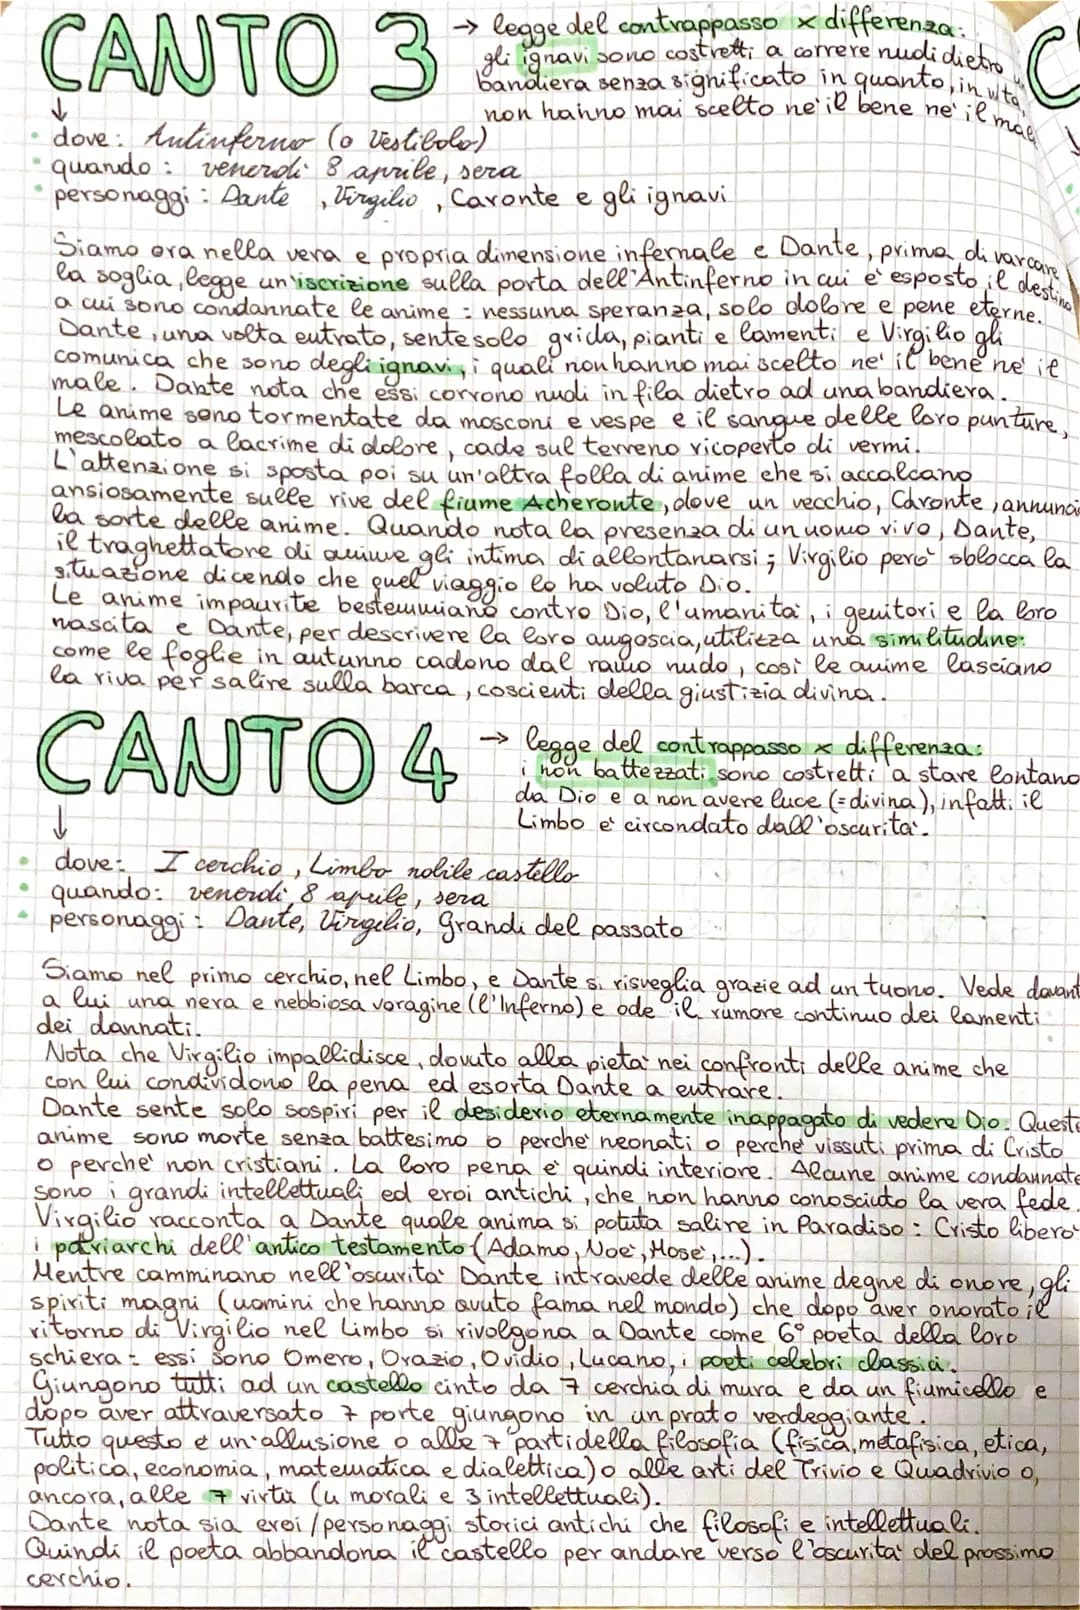 CANTO 3
→ legge del contrappasso x differenza:
gli ignavi sono costretti a correre nudi dietro
bandiera senza significato in quanto, in vita,
non hanno mai scelto ne' il bene ne' il male
↓
• dove: Antinferno (o Vestibolo)
• quando: venerdì 8 aprile, sera
• personaggi: Dante, Virgilio, Caronte e gli ignavi
Siamo ora nella vera e propria dimensione infernale e Dante, prima di varcare
la soglia, legge un'iscrizione sulla porta dell'Antinferno in cui e' esposto il destino
a cui sono condannate le anime: nessuna speranza, solo dolore e pene eterne.
Dante, una volta entrato, sente solo grida, pianti e lamenti e Virgilio gli
comunica che sono degli ignavi, i quali non hanno mai scelto ne' il bene ne' il
male. Dante nota che essi corrono nudi in fila dietro ad una bandiera.
Le anime sono tormentate da mosconi e vespe e il sangue delle loro punture,
mescolato a lacrime di dolore, cade sul terreno ricoperto di vermi.
L'attenzione si sposta poi su un'altra folla di anime che si accalcano
ansiosamente sulle rive del fiume Acheronte, dove un vecchio, Caronte, annuncia
la sorte delle anime. Quando nota la presenza di un uomo vivo, Dante,
il traghettatore di anime gli intima di allontanarsi; Virgilio pero' sblocca la
situazione dicendo che quel viaggio lo ha voluto Dio.
Le anime impaurite bestemmiano contro Dio, l'umanita', i genitori e la loro
nascita e Dante, per descrivere la loro angoscia, utilizza una similitudine:
come le foglie in autunno cadono dal ramo nudo, cosi' le anime lasciano
la riva per salire sulla barca, coscienti della giustizia divina.
CANTO 4
→ legge del contrappasso x differenza:
i non battezzati sono costretti a stare lontano
da Dio e a non avere luce (=divina), infatti il
Limbo e' circondato dall'oscurita'.
↓
• dove: I cerchio, Limbo nobile castello
• quando: venerdì, 8 aprile, sera
• personaggi: Dante, Virgilio, Grandi del passato
Siamo nel primo cerchio, nel Limbo, e Dante si risveglia grazie ad un tuono. Vede davant
a lui una nera e nebbiosa voragine (l'Inferno) e ode il rumore continuo dei lamenti
dei dannati.
Nota che Virgilio impallidisce, dovuto alla pieta' nei confronti delle anime che
con lui condividono la pena ed esorta Dante a entrare.
Dante sente solo sospiri per il desiderio eternamente inappagato di vedere Dio. Queste
anime sono morte senza battesimo o perche' neonati o perche' vissuti prima di Cristo
o perche' non cristiani. La loro pena e' quindi interiore. Alcune anime condannate
sono i grandi intellettuali ed eroi antichi, che non hanno conosciuto la vera fede.
Virgilio racconta a Dante quale anima si potuta salire in Paradiso: Cristo libero'
i patriarchi dell'antico testamento (Adamo, Noe', Mose',...).
Mentre camminano nell'oscurita' Dante intravede delle anime degne di onore, gli
spiriti magni (uomini che hanno avuto fama nel mondo) che dopo aver onorato il
ritorno di Virgilio nel Limbo si rivolgono a Dante come 6° poeta della loro
schiera: essi sono Omero, Orazio, Ovidio, Lucano, i poeti celebri classici.
Giungono tutti ad un castello cinto da 7 cerchia di mura e da un fiumicello e
dopo aver attraversato 7 porte giungono in un prato verdeggiante.
Tutto questo e' un'allusione o alle 7 parti della filosofia (fisica, metafisica, etica,
politica, economia, matematica e dialettica) o alle arti del Trivio e Quadrivio o,
ancora, alle 7 virtù (4 morali e 3 intellettuali).
Dante nota sia eroi/personaggi storici antichi che filosofi e intellettuali.
Quindi il poeta abbandona il castello per andare verso l'oscurita' del prossimo
cerchio.